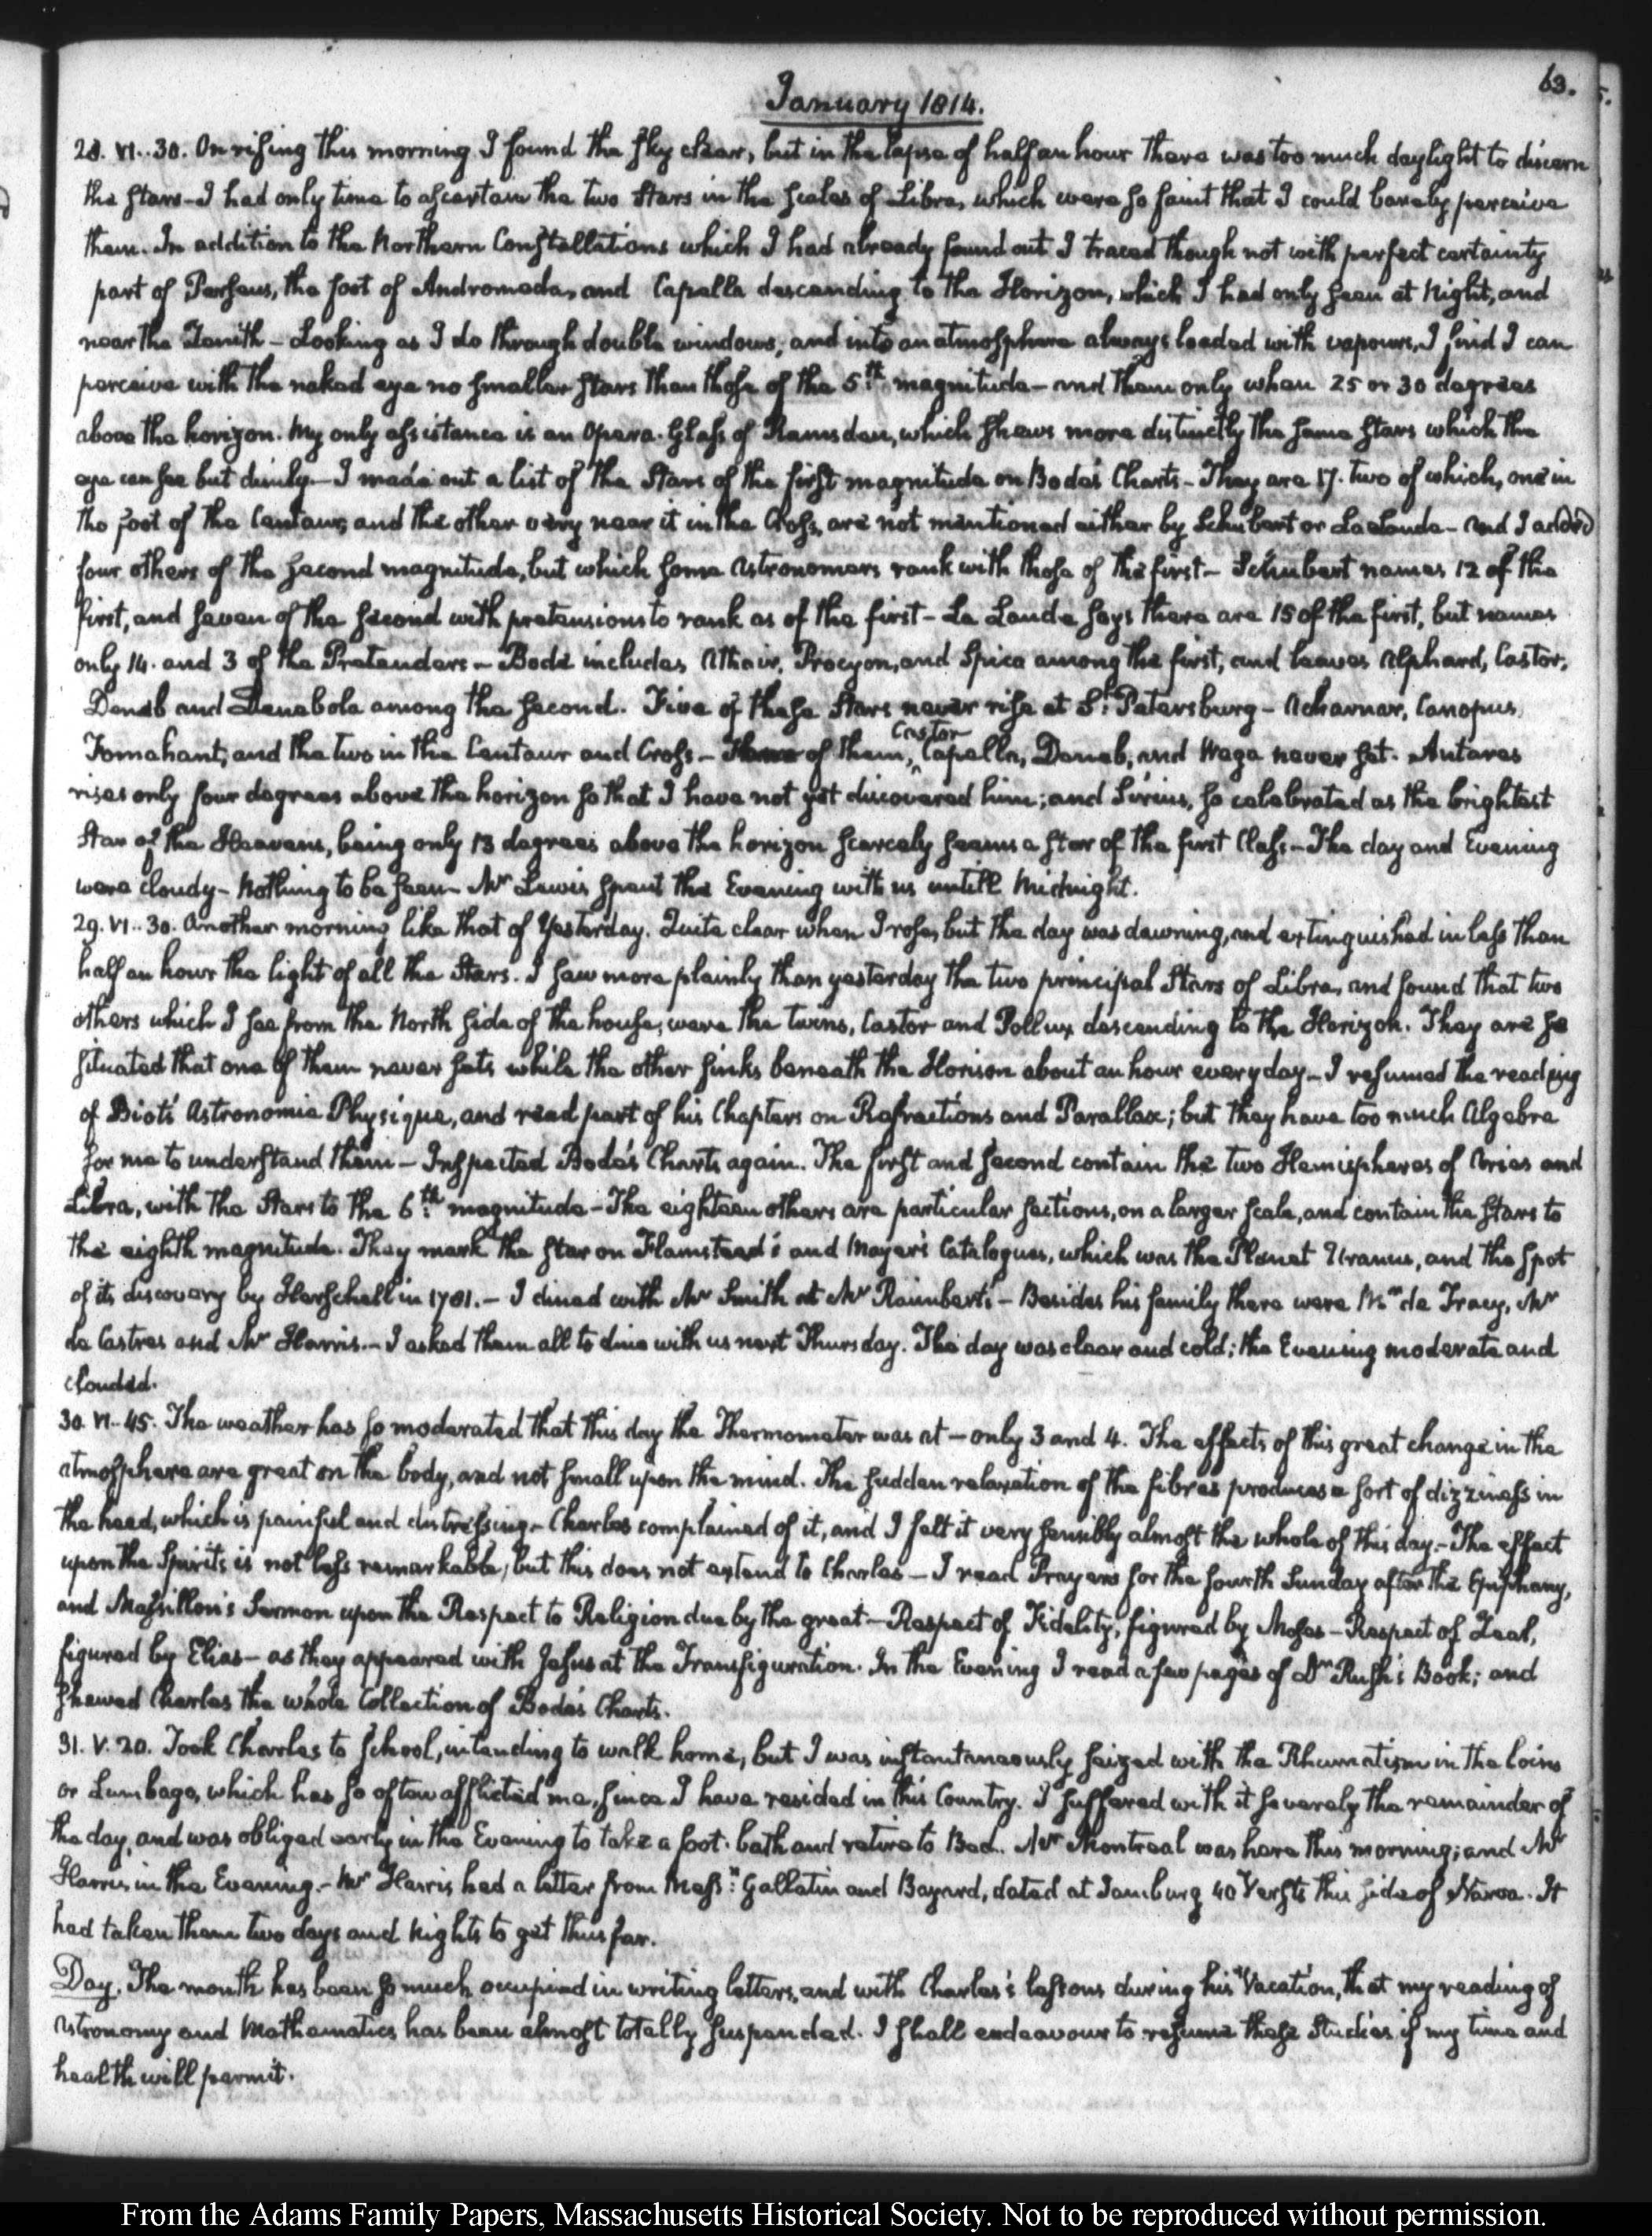 63.
January 1814.
28. VI..30. On rising this morning I found the sky clear, but in the lapse of half an hour there was too much daylight to discern
the stars – I had only time to ascertain the two Stars in the scales of Libra, which were so faint that I could barely perceive
them. In addition to the Northern Constellations which I had already found out I traced though not with perfect certainty
part of Perseus, the foot of Andromeda, and Capella descending to the Horizon, which I had only seen at Night, and
near the Zenith – Looking as I do through double windows, and into an atmosphere always loaded with vapours, I find I can
perceive with the naked eye no smaller stars than those of the 5th. magnitude – and them only when 25 or 30 degrees
above the horizon. My only assistance is an Opera-Glass of Ramsden, which shews more distinctly the same stars which the
eye can see but dimly – I made out a list of the Stars of the first magnitude on Bode's Charts – They are 17. two of which, one in
the foot of the Centaur, and the other very near it in the Cross, are not mentioned either by Schubert or La Lande – And I added
four others of the second magnitude, but which some Astronomers rank with those of the first – Schubert names 12 of the
first, and seven of the second with pretensions to rank as of the first – La Lande says there are 15 of the first, but names
only 14. and 3 of the Pretenders – Bode includes Athair, Procyon, and Spica among the first, and leaves Alphard, Castor,
Deneb and Denebola among the second. Five of these Stars never rise at St. Petersburg – Acharnar, Canopus,
Fomahant, and the two in the Centaur and Cross – of them, Castor Capella, Deneb, and Wega never set. Antares
rises only four degrees above the horizon so that I have not yet discovered him; and Sirius, so celebrated as the brightest
Star of the Heavens, being only 13 degrees above the horizon scarcely seems a star of the first Class – The day and Evening
were cloudy – Nothing to be seen – Mr Lewis spent the Evening with us untill Midnight.
29. VI..30. Another morning like that of Yesterday. Quite clear when I rose, but the day was dawning, and extinguished in less than
half an hour the light of all the Stars. I saw more plainly than yesterday the two principal Stars of Libra, and found that two
others which I see from the North side of the house, were the twins, Castor and Pollux descending to the Horizon. They are so
situated that one of them never sets while the other sinks beneath the Horison about an hour every day – I resumed the reading
of Biot's Astronomie Physique, and read part of his Chapters on Refractions and Parallax; but they have too much Algebra
for me to understand them – Inspected Bode's Charts again. The first and second contain the two Hemispheres of Aries and
Libra, with the Stars to the 6th. magnitude – The eighteen others are particular sections, on a larger scale, and contain the stars to
the eighth magnitude. They mark the star on Flamstead's and Mayer's Catalogues, which was the Planet Uranus, and the spot
of its discovery by Herschell in 1781. – I dined with Mr Smith at Mr Raimbert's – Besides his family there were Mr de Tracy, Mr
de Castres and Mr Harris. – I asked them all to dine with us next Thursday. The day was clear and cold; the Evening moderate and
clouded.
30. VI..45. The weather has so moderated that this day the Thermometer was at – only 3 and 4. The effects of this great change in the
atmosphere are great on the body, and not small upon the mind. The sudden relaxation of the fibres produces a sort of dizziness in
the head, which is painful and distressing – Charles complained of it, and I felt it very sensibly almost the whole of this day. – The effect
upon the Spirits is not less remarkable, but this does not extend to Charles – I read Prayers for the fourth Sunday after the Epiphany,
and Massillon's Sermon upon the Respect to Religion due by the great – Respect of Fidelity, figured by Moses – Respect of Zeal,
figured by Elias – as they appeared with Jesus at the Transfiguration. In the Evening I read a few pages of Dr Rush's Book; and
shewed Charles the whole Collection of Bode's Charts.
31. V. 20. Took Charles to School, intending to walk home, but I was instantaneously seized with the Rheumatism in the loins
or Lumbago, which has so often afflicted me, since I have resided in this Country. I suffered with it severely the remainder of
the day, and was obliged early in the Evening to take a foot-bath and retire to Bed. Mr Montreal was here this morning; and Mr
Harris in the Evening. – Mr Harris had a letter from Messrs: Gallatin and Bayard, dated at Jamburg 40 Versts this side of Narva. It
had taken them two days and Nights to get thus far.
Day. The month has been so much occupied in writing letters, and with Charles's lessons during his Vacation, that my reading of
Astronomy and Mathematics has been almost totally suspended. I shall endeavour to resume these Studies if my time and
health will permit.
From the Adams Family Papers, Massachusetts Historical Society. Not to be reproduced without permission.